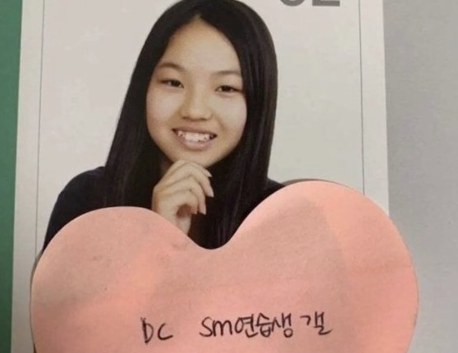 DC sm연습생갤